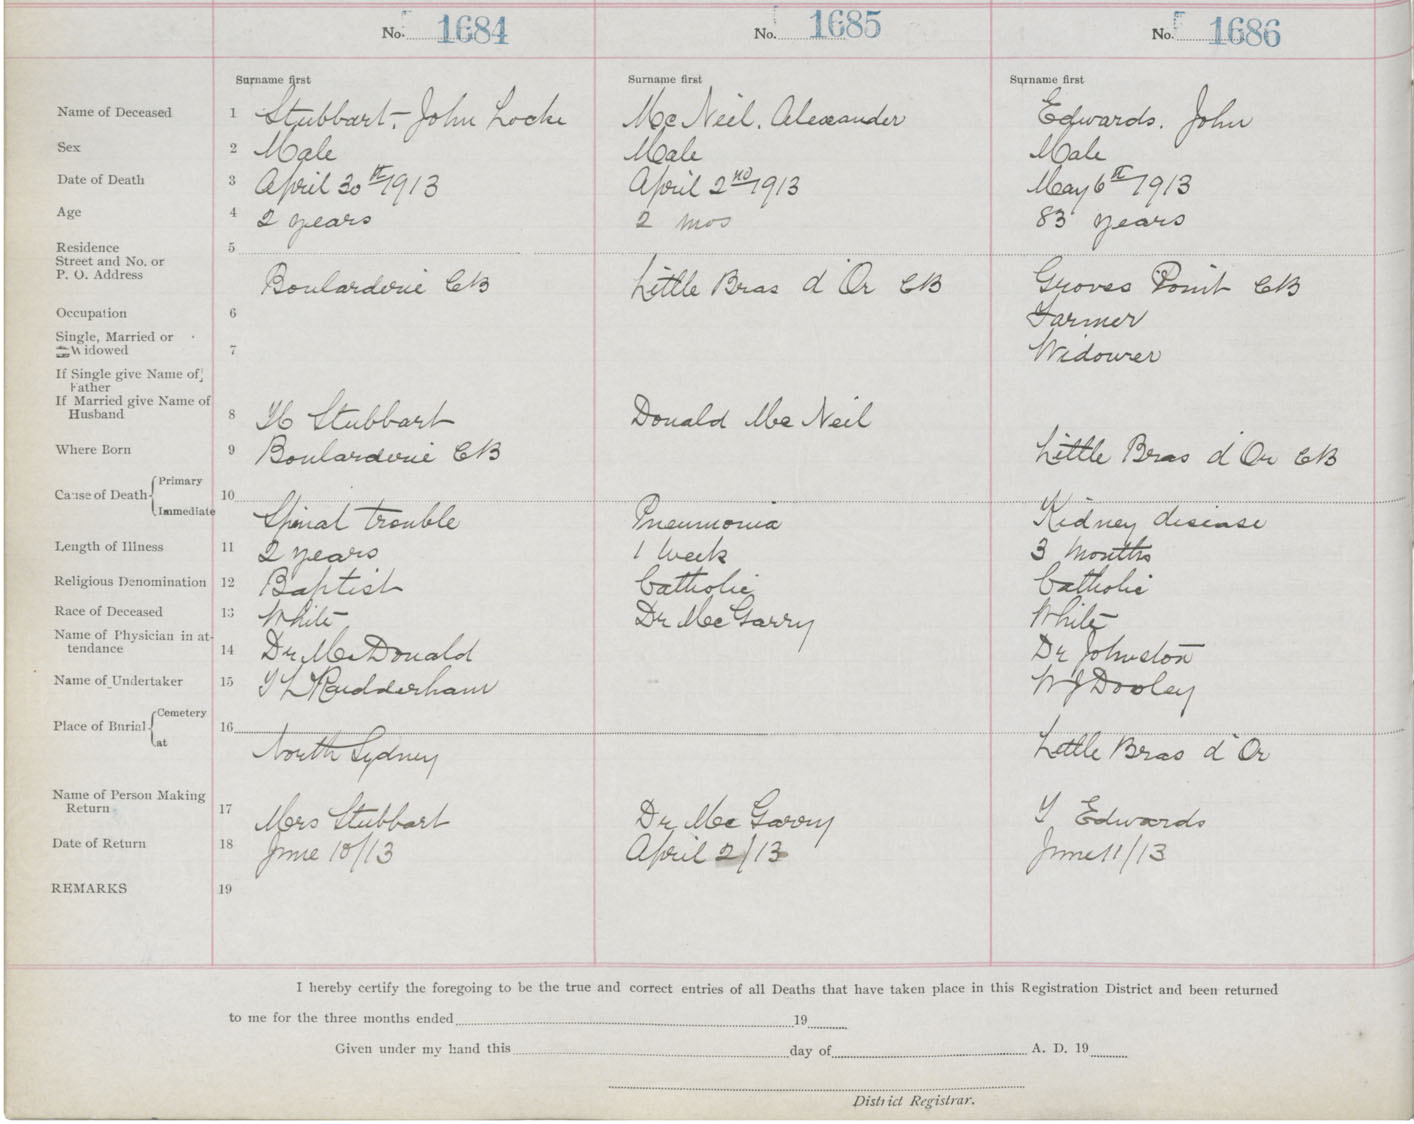 No. 1684 No. 1685 No. 1686
Surname first Surname first Surname first
Name of Deceased 1 Stubbart, John Locke Mc Neil, Alexander Edwards, John
Sex 2 Male Male Male
Date of Death 3 April 30th 1913 April 2nd 1913 May 6th 1913
Age 4 2 years 2 mos 83 years
Residence 5
Street and No. or
P. O. Address Boularderie CB Little Bras d'Or CB Groves Point CB
Occupation 6 Farmer
Single, Married or
Widowed 7 Widower
If Single give Name of
Father
If Married give Name of
Husband 8 H Stubbart Donald Mc Neil
Where Born 9 Boularderie CB Little Bras d'Or CB
Cause of Death { Primary 10
Immediate Spinal trouble Pneumonia Kidney disease
Length of Illness 11 2 years 1 Week 3 Months
Religious Denomination 12 Baptist Catholic Catholic
Race of Deceased 13 White Dr Mc Garry White
Name of Physician in at-
tendance 14 Dr McDonald Dr Johnston
Name of Undertaker 15 F L Rudderham W J Dooley
Place of Burial { Cemetery 16
at North Sydney Little Bras d'Or
Name of Person Making
Return 17 Mrs Stubbart Dr Mc Garry Edwards
Date of Return 18 June 10/13 April 2/13 June 11/13
REMARKS 19
I hereby certify the foregoing to be the true and correct entries of all Deaths that have taken place in this Registration District and been returned
to me for the three months ended 19
Given under my hand this day of A. D. 19
District Registrar.